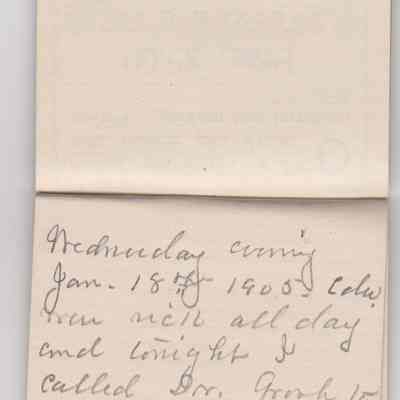 Wednesday evening
Jan. 18th 1905. Edw.
was sick all day
and tonight I
called Dr. to